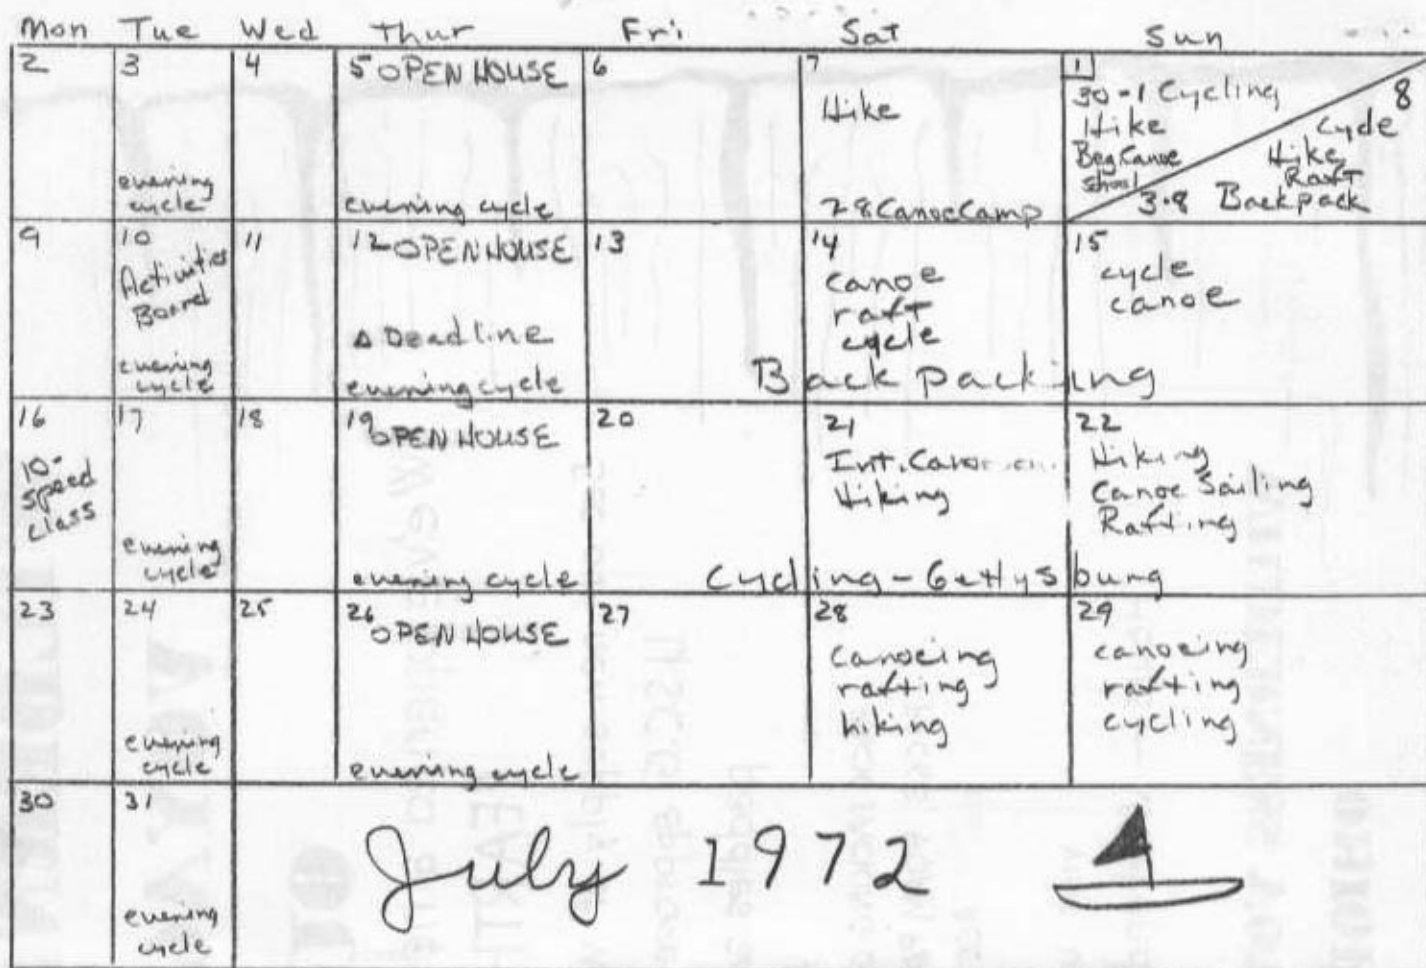 Mon Tue Wed Thur Fri Sat Sun
2
3
evening
cycle
4
5 OPEN HOUSE
evening cycle
6
7
Hike
7-8 Canoe Camp
1
30-1 Cycling
Hike
Beg Canoe
School
8
Cycle
Hike
Raft
3-8 Backpack
9
10
Activities
Board
evening
cycle
11
12 OPEN HOUSE
Δ Deadline
evening cycle
13
14
canoe
raft
cycle
15
cycle
canoe
Backpacking
16
10-
speed
class
17
evening
cycle
18
19 OPEN HOUSE
evening cycle
20
21
Int. Canoe
Hiking
22
Hiking
Canoe Sailing
Rafting
Cycling - Gettysburg
23
24
evening
cycle
25
26 OPEN HOUSE
evening cycle
27
28
canoeing
rafting
hiking
29
canoeing
rafting
cycling
30
31
evening
cycle
July 1972